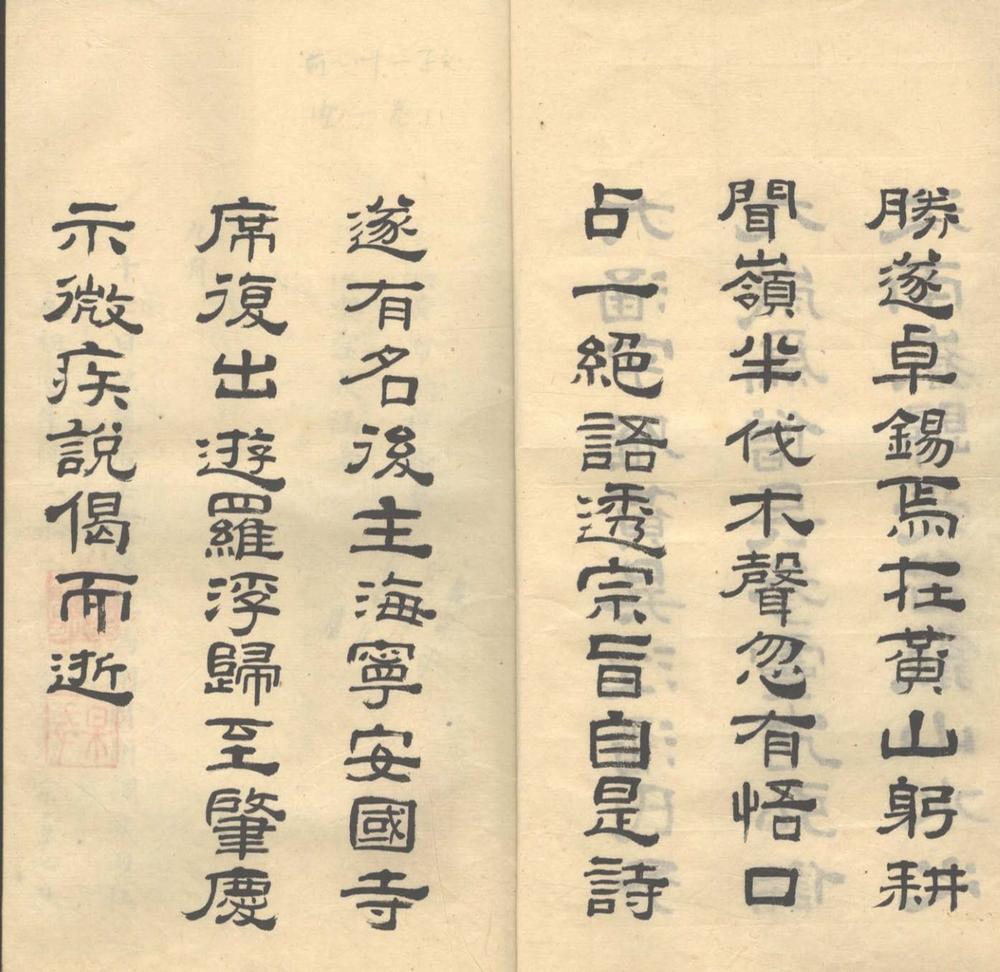 勝遂卓錫焉在黃山躬耕
聞嶺半伐木聲忽有悟口
占一絕語透宗旨自是詩
遂有名後主海寧安國寺
席復出遊羅浮歸至肇慶
示微疾說偈而逝